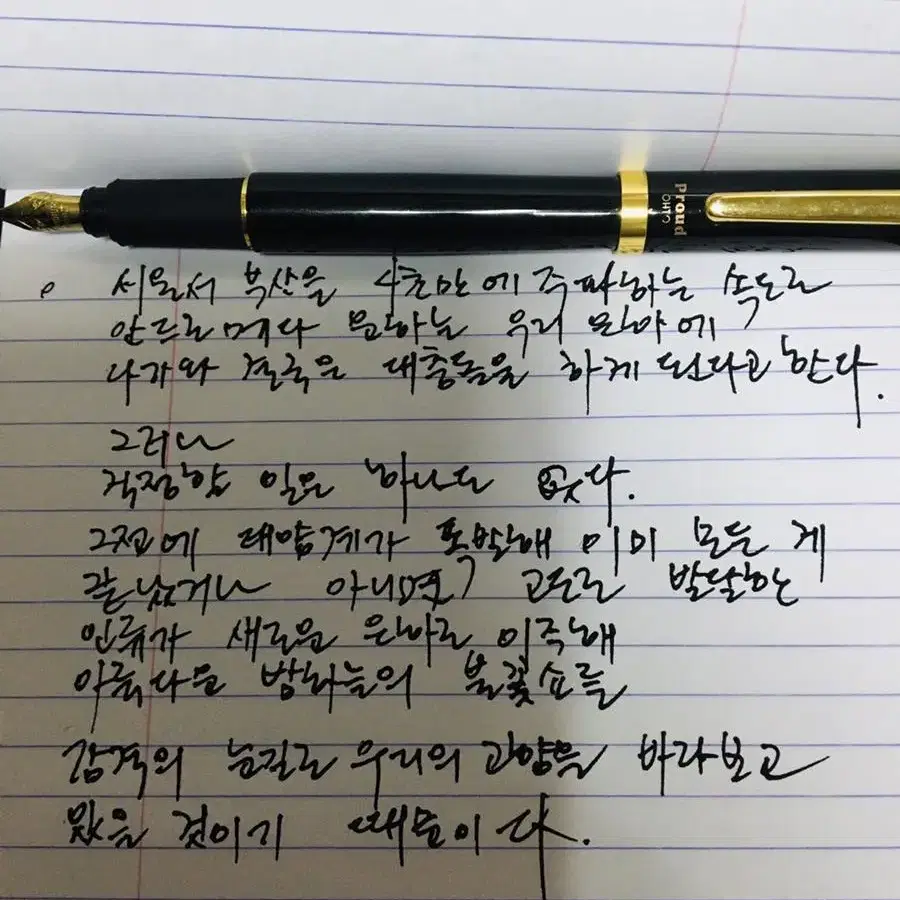 Proud
OHTO
서울서 부산을 4초만에 주파하는 속도로
안드로메다 은하는 우리 은하에
다가와 결국은 대충돌을 하게 된다고 한다.
그러나
걱정할 일은 하나도 없다.
그전에 태양계가 폭발해 이미 모든 게
끝났거나 아니면, 고도로 발달한
인류가 새로운 은하로 이주해
아름다운 밤하늘의 불꽃쇼를
감격의 눈길로 우리의 태양을 바라보고
있을 것이기 때문이다.